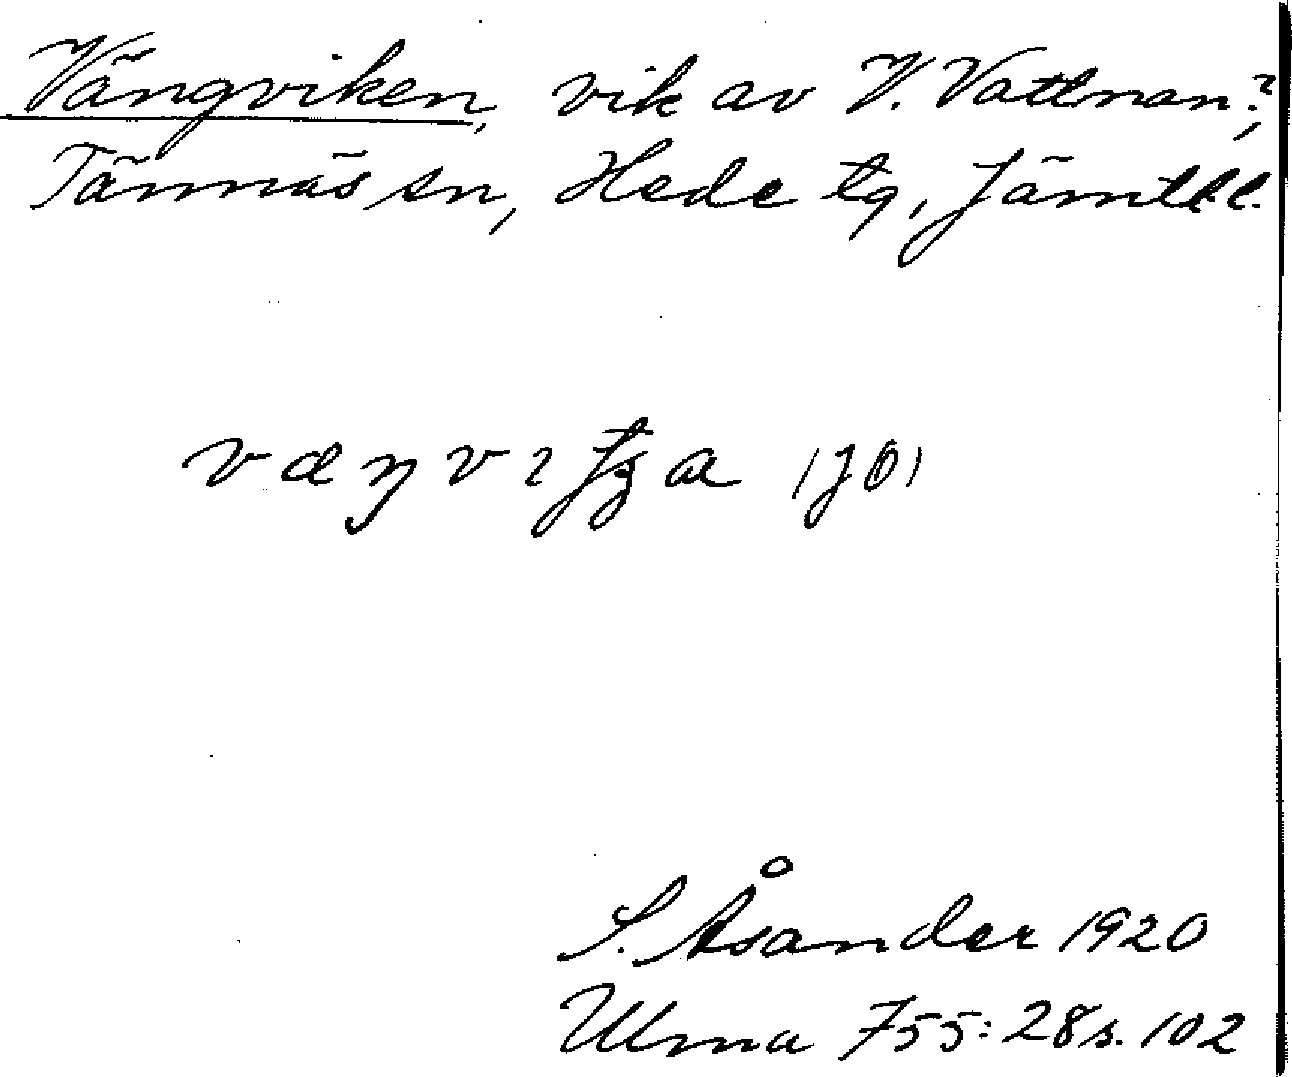 Vängviken, vik av V. Vattnan?,
Tännäs sn, Hede tg, Jämtl. l.
S. Åsander 1920
Ulma 755:28 s. 102